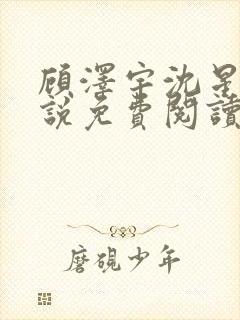 顾澤宇沈星
說免費閱讀
磨硯少年